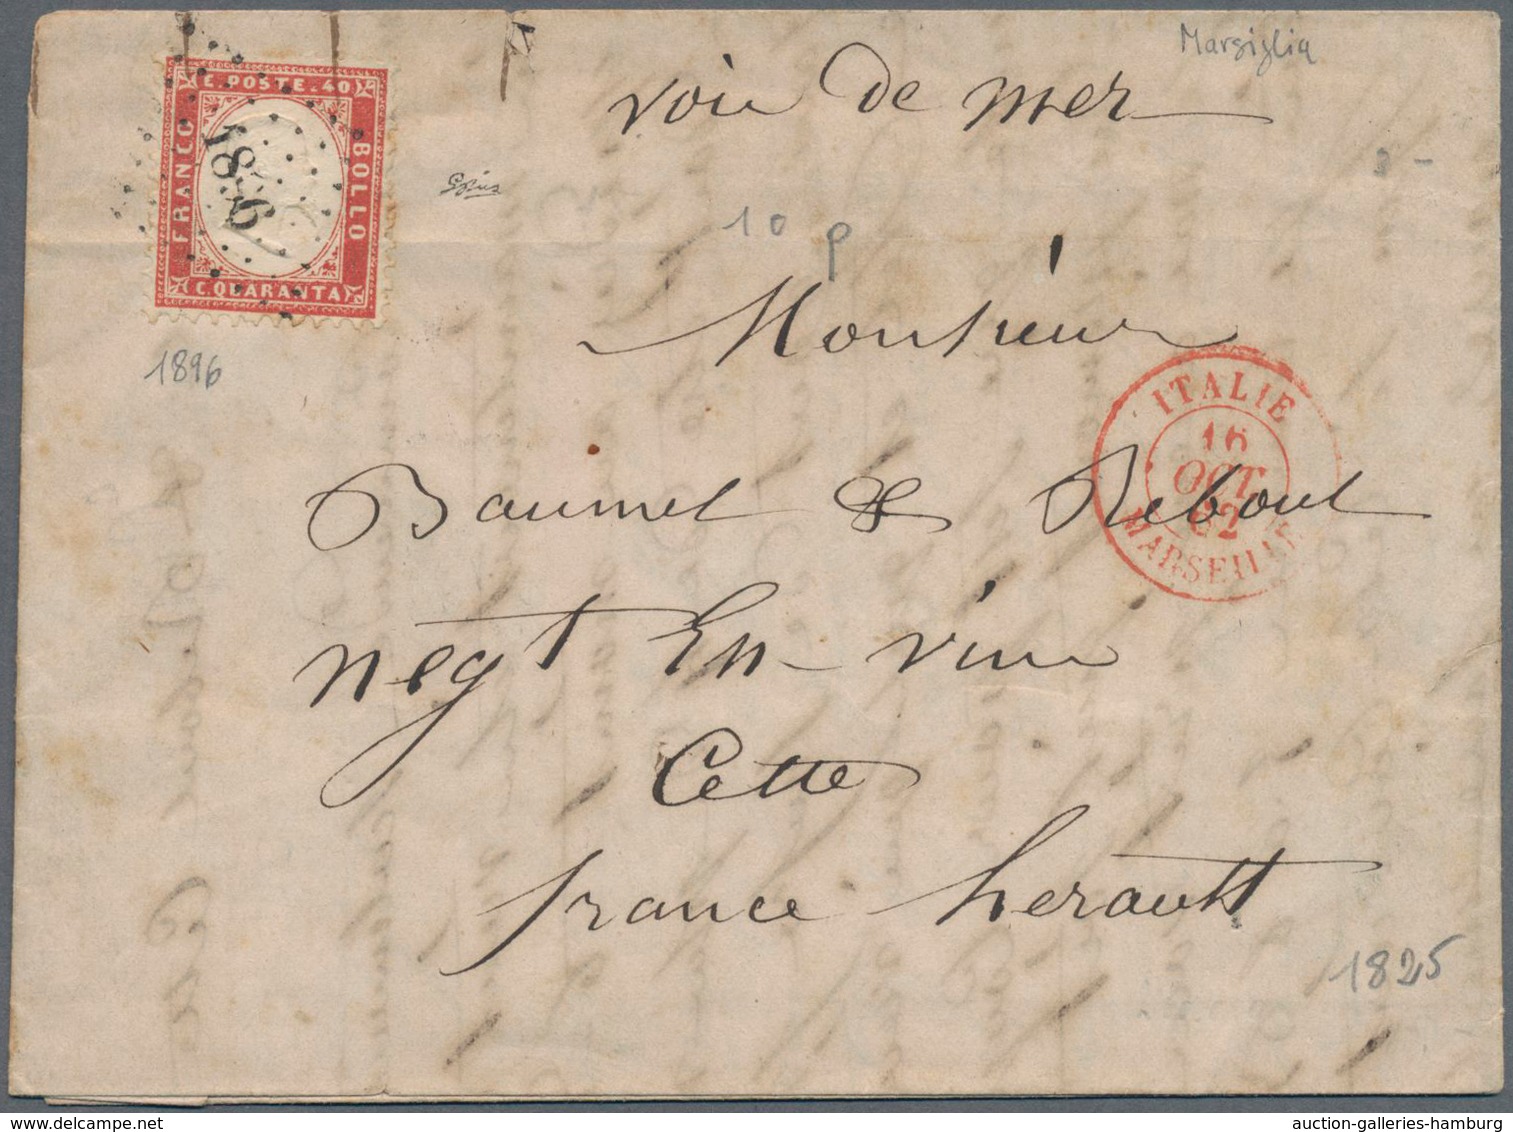 Marsiglia
voie de mer
C. POSTE. 40
FRANCO
BOLLO
C. QUARANTA
1896
10 p
1896
Monsieur
ITALIE
16
OCT.
62
MARSEILLE
Baumel & Reboul
negt En vins
Cette
france herault
1825
auction-galleries-hamburg